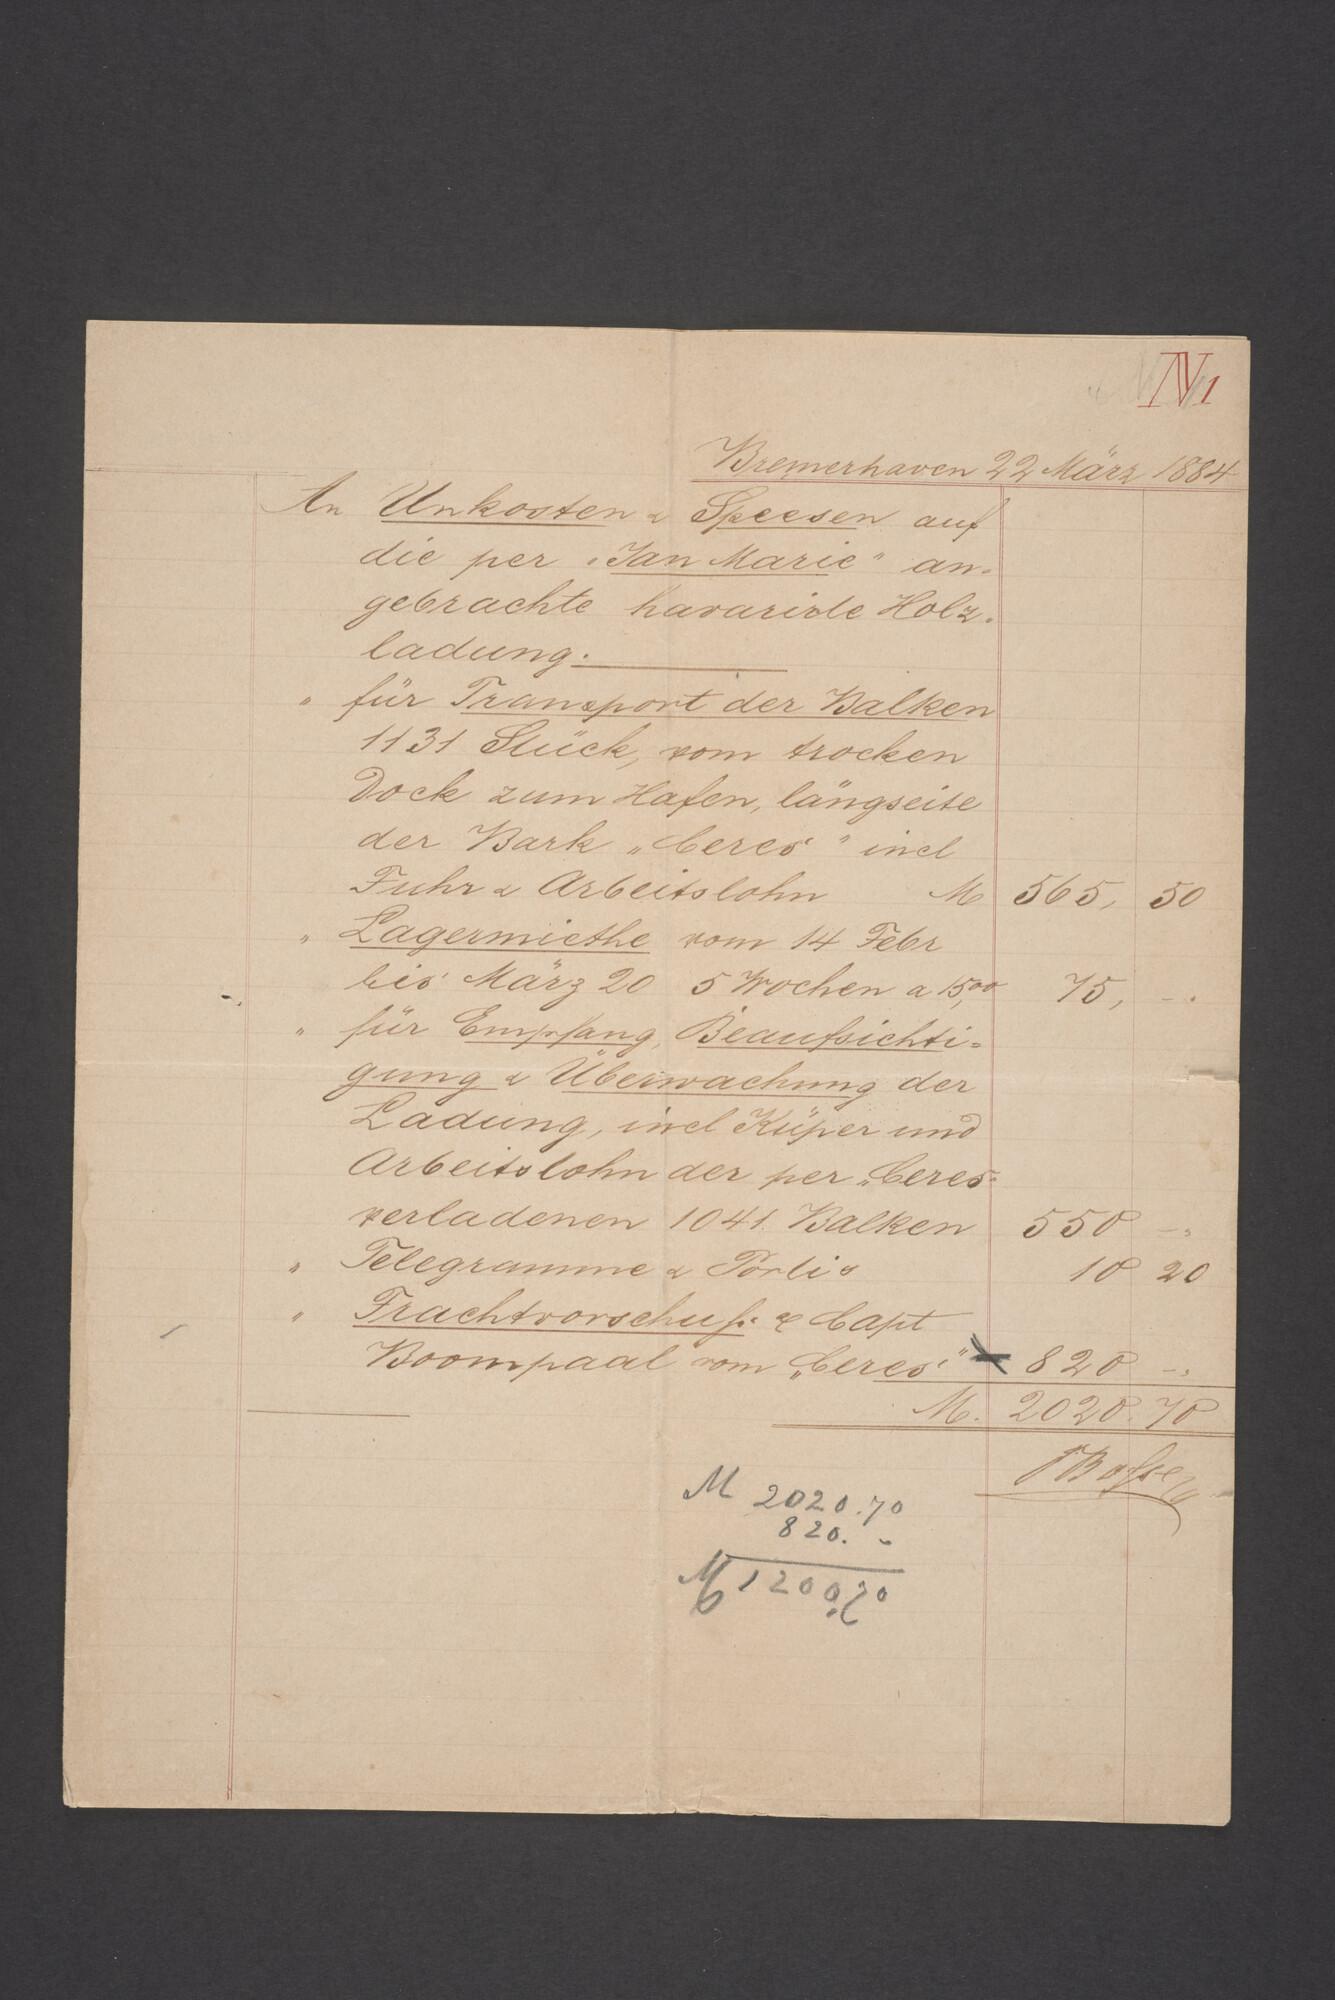 N 1
Bremerhaven 22 März 1884
An Unkosten & Speesen auf
die per "Jan Marie" an-
gebrachte havarirte Holz-
ladung.
" für Transport der Balken
1131 Stück, vom trocken
Dock zum Hafen, längseite
der Bark "Ceres" incl
Fuhr & Arbeitslohn M 565, 50
" Lagermiethe vom 14 Febr
bis März 20 5 Wochen a 15,00 75, -.
" für Empfang, Beaufsichti-
gung & Überwachung der
Ladung, incl Küper und
Arbeitslohn der per "Ceres"
verladenen 1041 Balken 550 -.
" Telegramme & Portis 10 20
" Frachtvorschuß & Capt
Boompaal vom "Ceres" 820 -.
M. 2020. 70
M 2020.70
820. -
M 1200.70